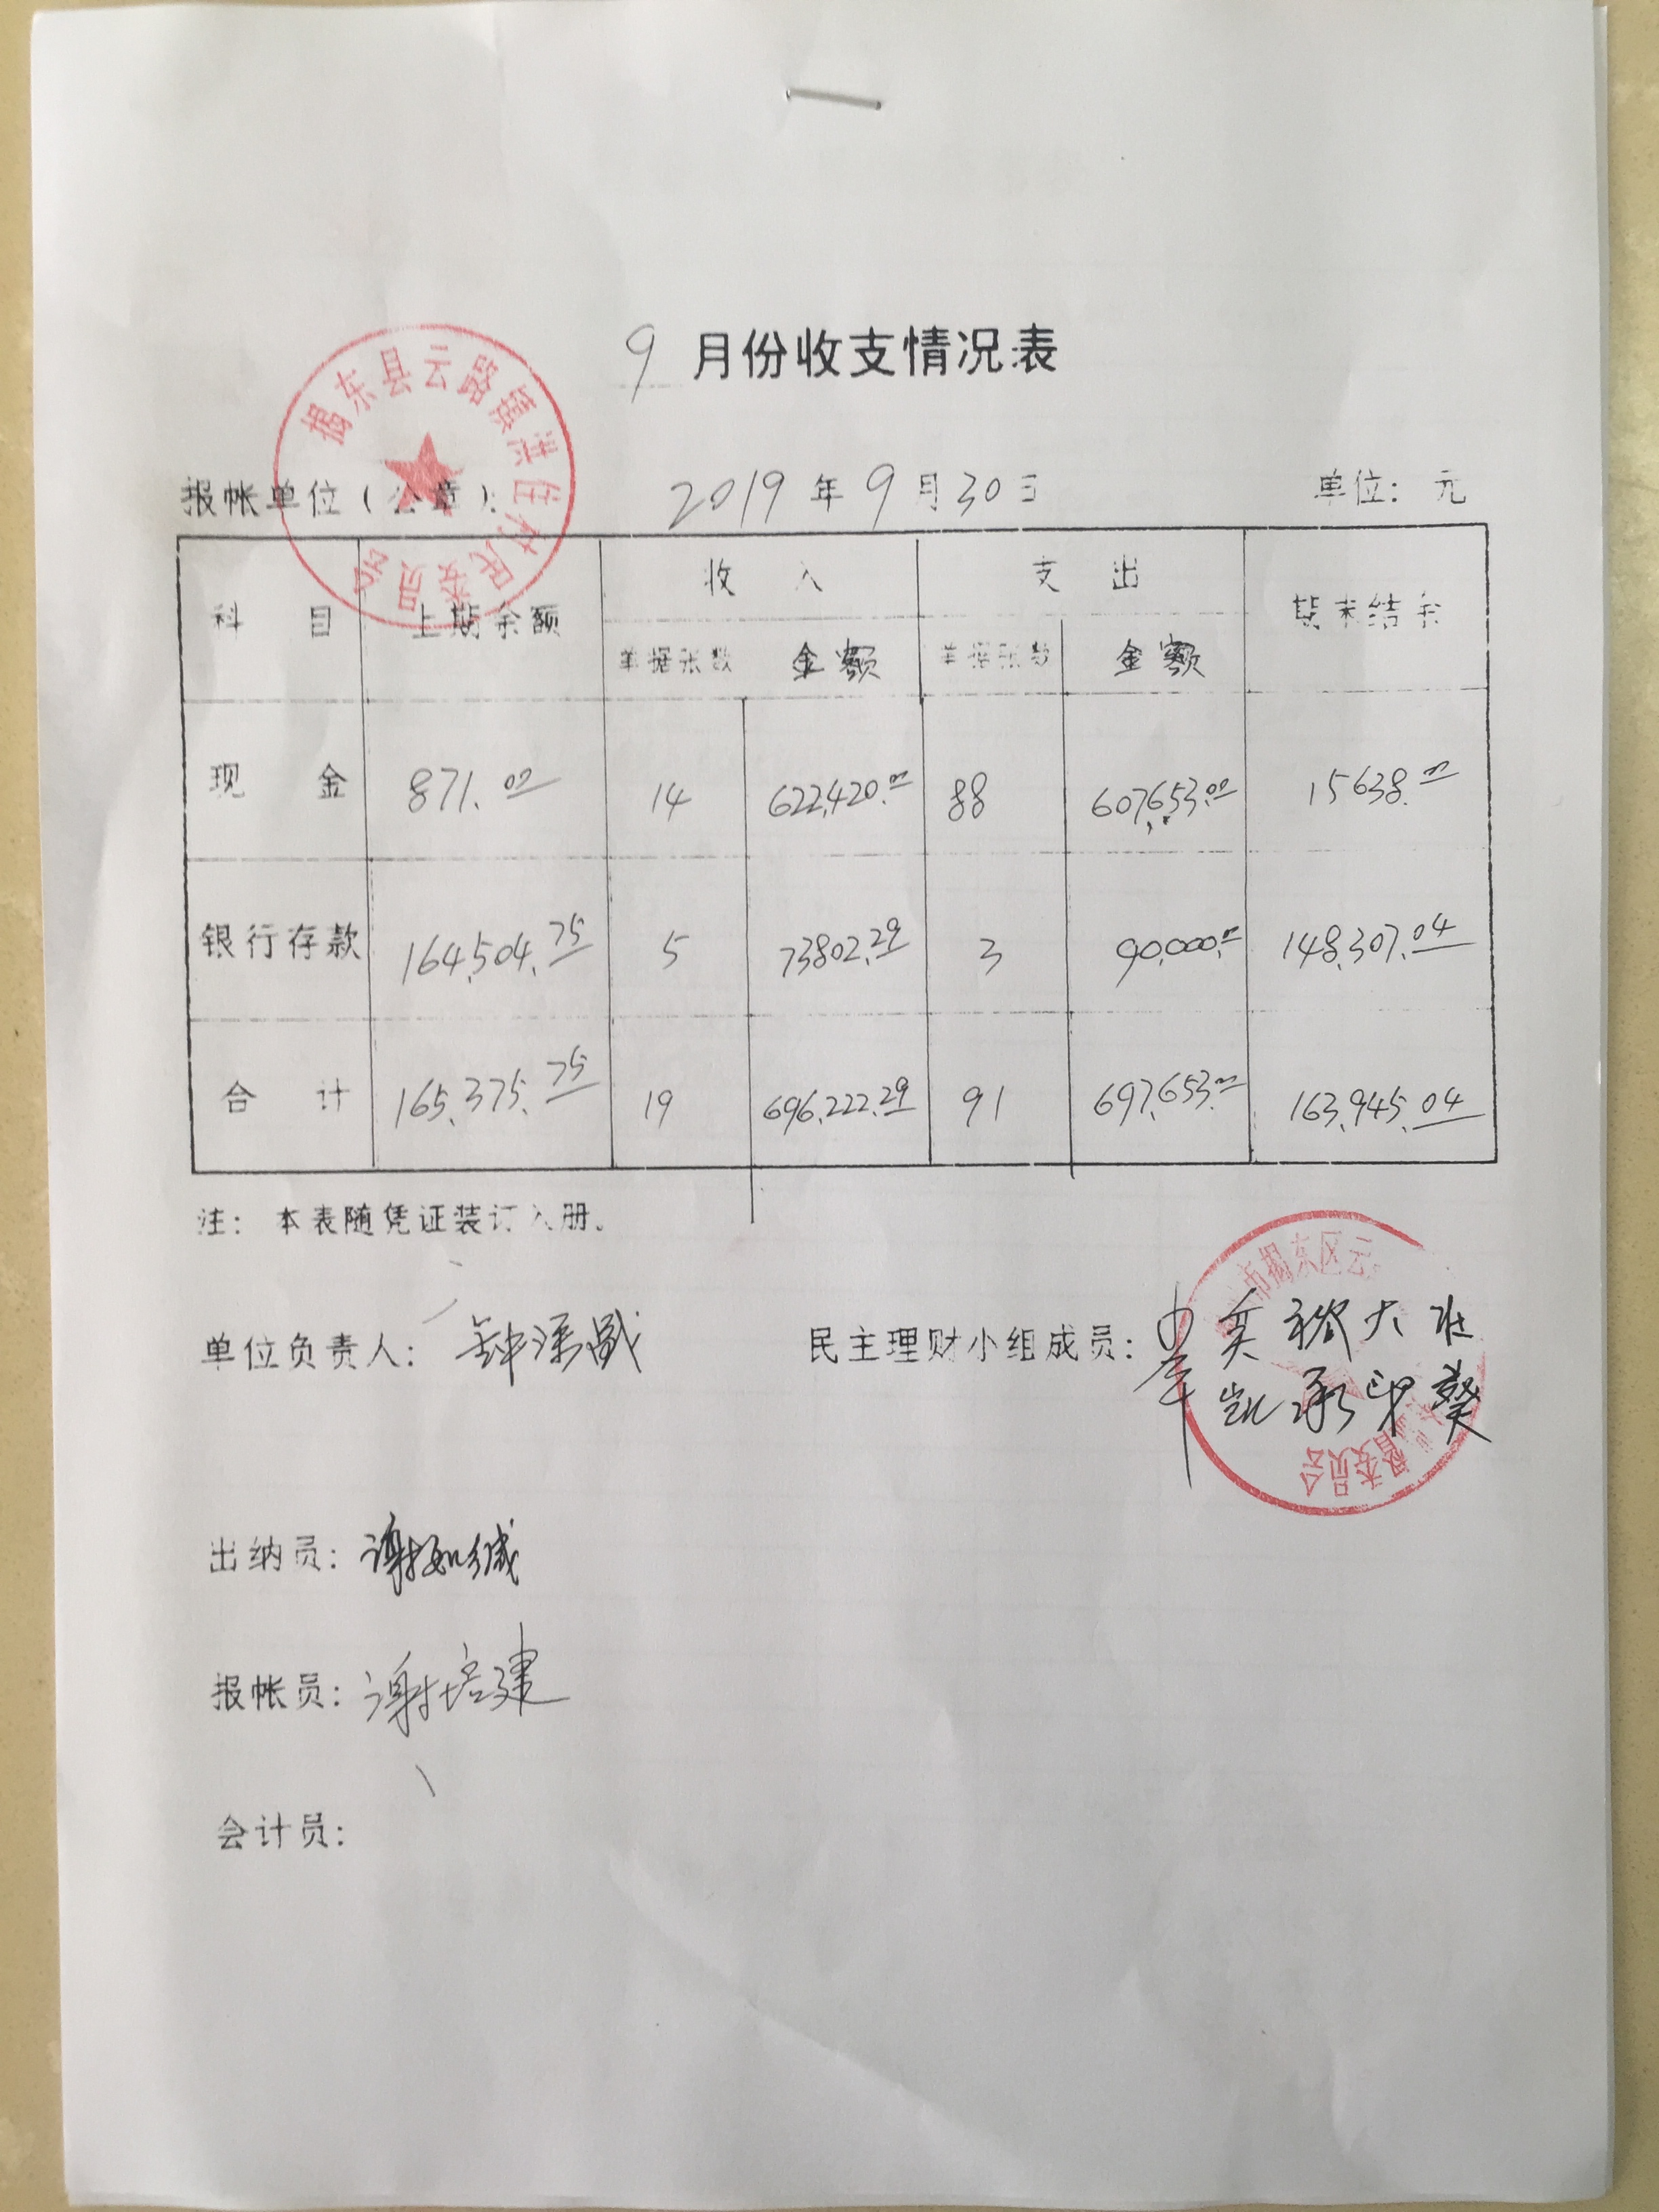 9 月份收支情况表
揭东县云路镇洪住村民委员会
报帐单位(公章): 2019年9月30日 单位: 元
科 目 上期余额 收 入 支 出 期末结余
单据张数 金额 单据张数 金额
现 金 871.00 14 622,420.00 88 607,653.00 15638.00
银行存款 164,504.75 5 73802.29 3 90,000.00 148,307.04
合 计 165,375.75 19 696,222.29 91 697,653.00 163,945.04
注: 本表随凭证装订入册。
市揭东区云
单位负责人: 民主理财小组成员:
凯承印
委员会
出纳员: 谢
报帐员: 谢培建
会计员: